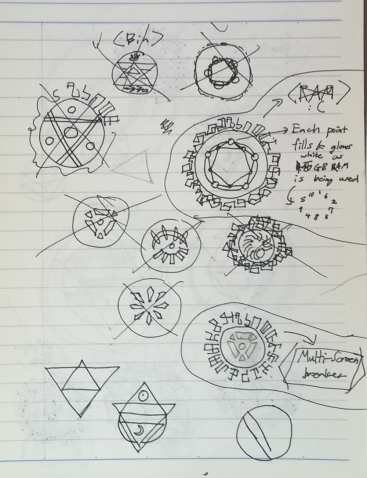 <Bin>
<RAM>
: C
→ Each point
fills & glows
white as
GB RAM
is being used
Multi-Screen